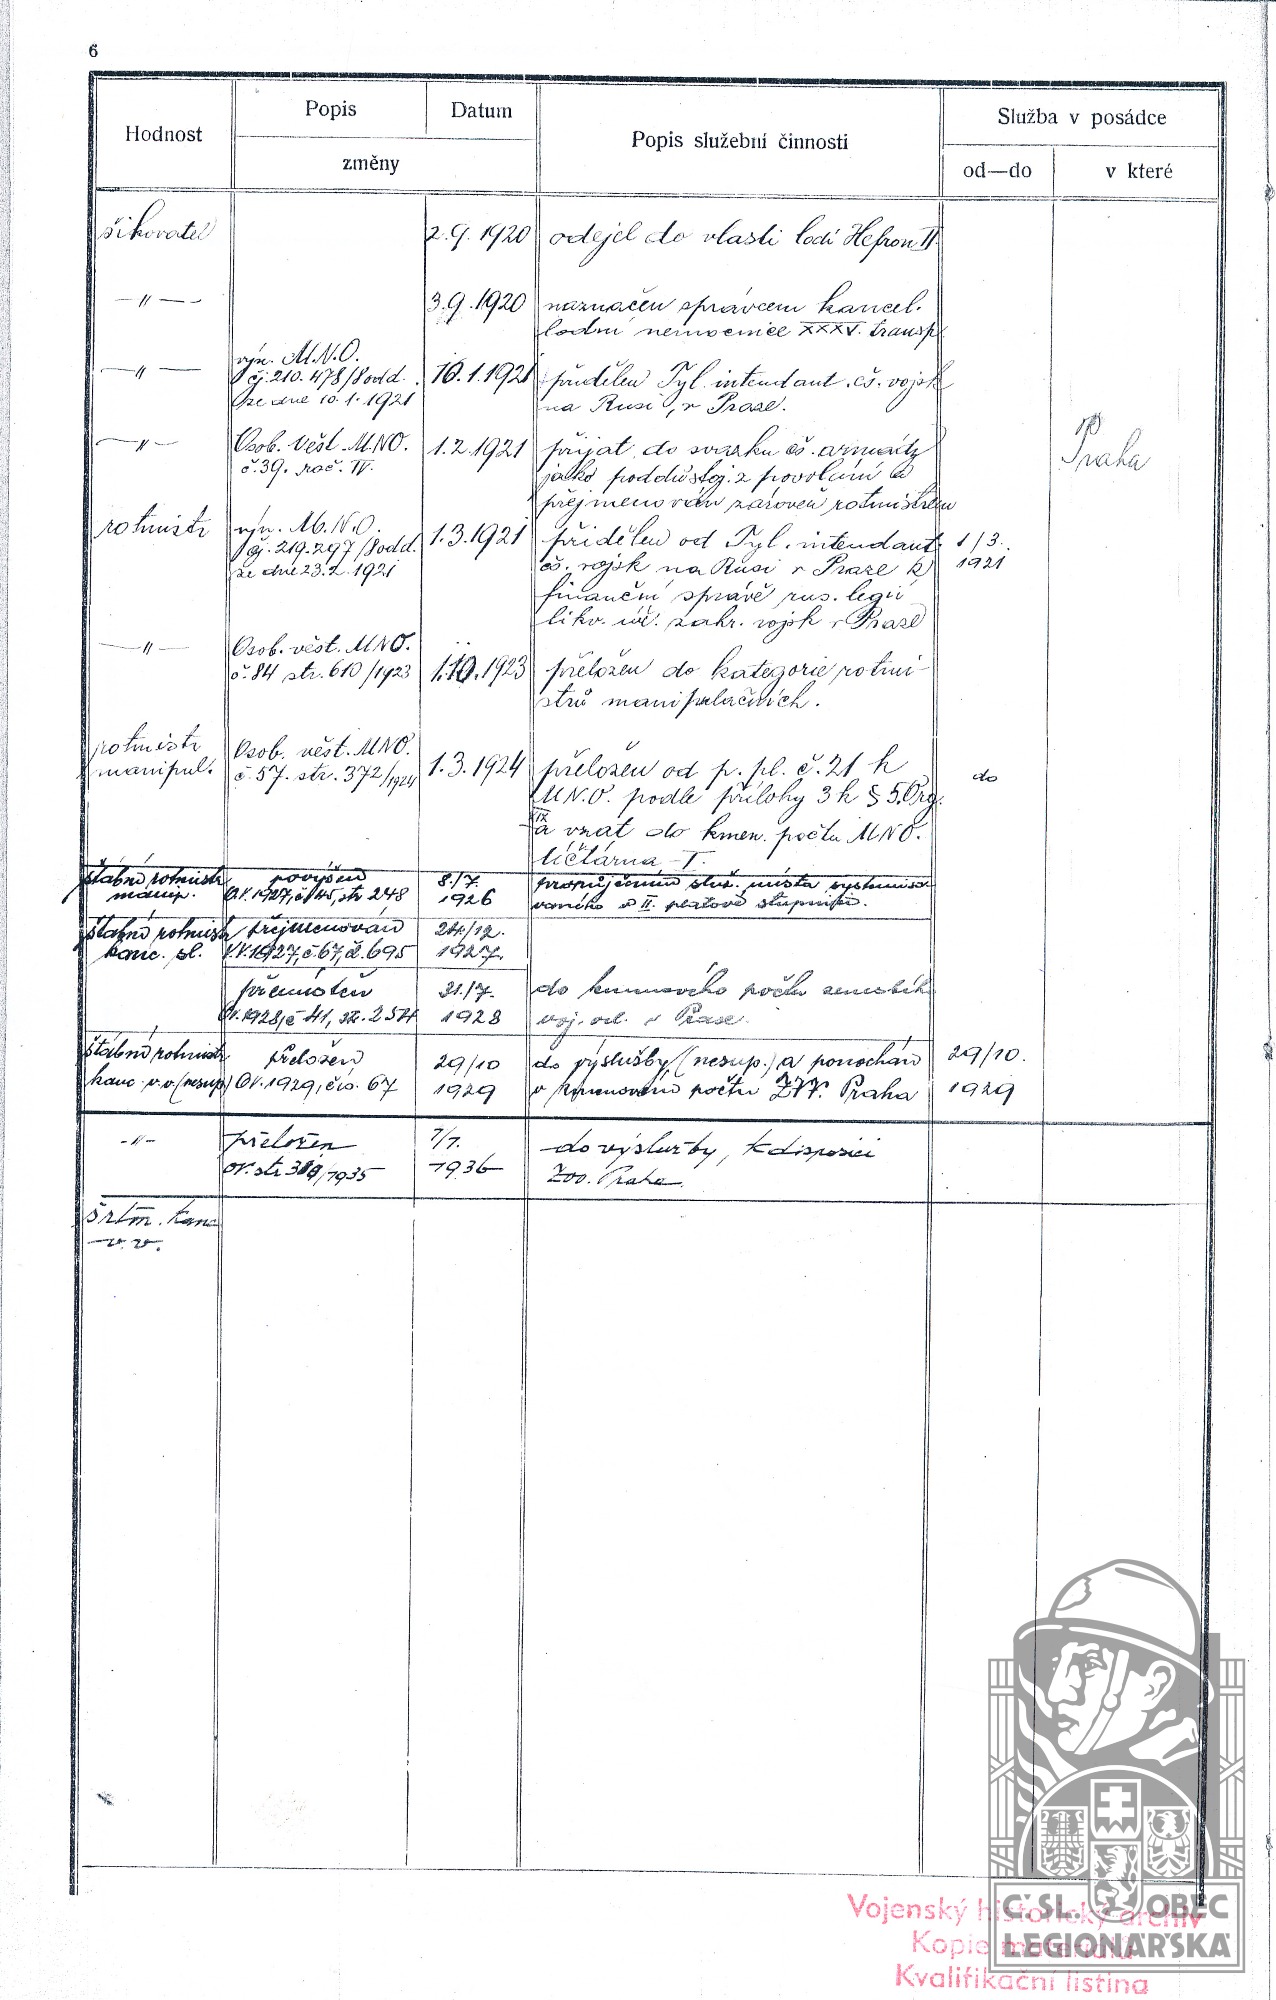 6
Hodnost
Popis
Datum
změny
Popis služební činnosti
Služba v posádce
od—do
v které
šikovatel
2.9.1920
odejel do vlasti lodí Hefron II.
—"—
3.9.1920
naznačen správcem kancel.
lodní nemocnice XXXV. transp.
—"—
výn. M.N.O.
čj. 210.478/8 odd.
ze dne 10.1.1921
10.1.1921
přidělen Tyl. intendant. čs. vojsk
na Rusi, v Praze.
—"—
Osob. Věst. MNO.
č. 39. roč. IV.
1.2.1921
přijat do svazku čs. armády
jako poddůstoj. z povolání a
přejmenován zároveň rotmistrem
Praha
rotmistr
výn. M.N.O.
čj. 219.297/8 odd.
ze dne 23.2.1921
1.3.1921
přidělen od Tyl. intendant.
čs. vojsk na Rusi v Praze k
finanční správě rus. legií
likv. úř. zahr. vojsk v Praze
1/3.
1921
—"—
Osob. věst. MNO.
č. 84 str. 610/1923
1.10.1923
přeložen do kategorie rotmi-
strů manipulačních.
rotmistr
manipul.
Osob. věst. MNO.
č. 57. str. 372/1924
1.3.1924
přeložen od p. pl. č. 21 k
M.N.O. podle přílohy 3 k § 5. Org.
XIX
a vzat do kmen. počtu MNO.
účtárna I.
do
štábní rotmistr
manip.
povýšen
OV. 1927, č. 45, str. 248
8./7.
1926
propůjčením služ. místa systemiso-
vaného v II. platové stupnici.
štábní rotmistr
kanc. sl.
přejmenován
V.V. 1927, č. 67, čl. 695
24./12.
1927.
přemístěn
OV. 1928, č. 41, str. 254
31./7.
1928
do kmenového počtu zemského
voj. vel. v Praze.
štábní rotmistr
kanc. v. v. (nesup.)
přeložen
OV. 1929, čís. 67
29/10
1929
do výslužby (nesup.) a ponechán
v kmenovém počtu ZVV. Praha
29/10.
1929
-"-
přeložen
OV. str. /1935
1/1.
1936
do výslužby, k disposici
Praha.
šrtm. kanc
v. v.
Č.SL. OBEC
LEGIONÁŘSKÁ
Vojenský historický archiv
Kopie materiálů
Kvalifikační listina